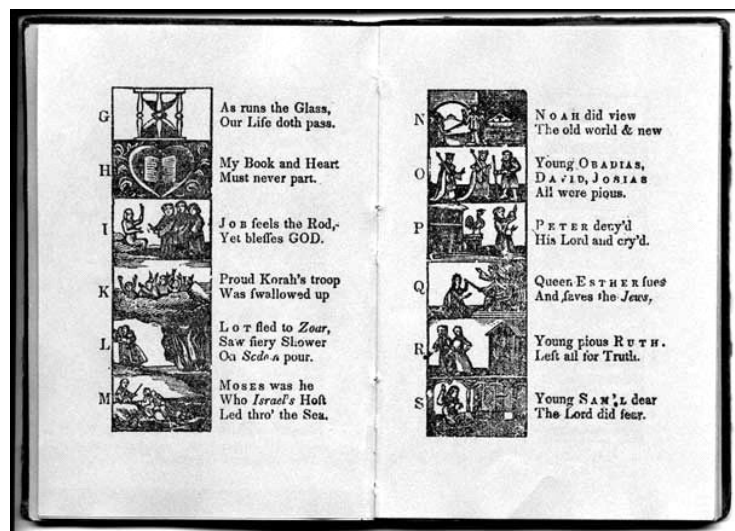 G
As runs the Glass,
Our Life doth pass.
H
My Book and Heart
Must never part.
I
JOB feels the Rod,
Yet blesses GOD.
K
Proud Korah's troop
Was swallowed up
L
LOT fled to Zoar,
Saw fiery Shower
On Sodom pour.
M
MOSES was he
Who Israel's Host
Led thro' the Sea.
N
NOAH did view
The old world & new
O
Young OBADIAS,
DAVID, JOSIAS
All were pious.
P
PETER deny'd
His Lord and cry'd.
Q
Queen ESTHER sues
And saves the Jews,
R
Young pious RUTH.
Left all for Truth.
S
Young SAM'L dear
The Lord did fear.